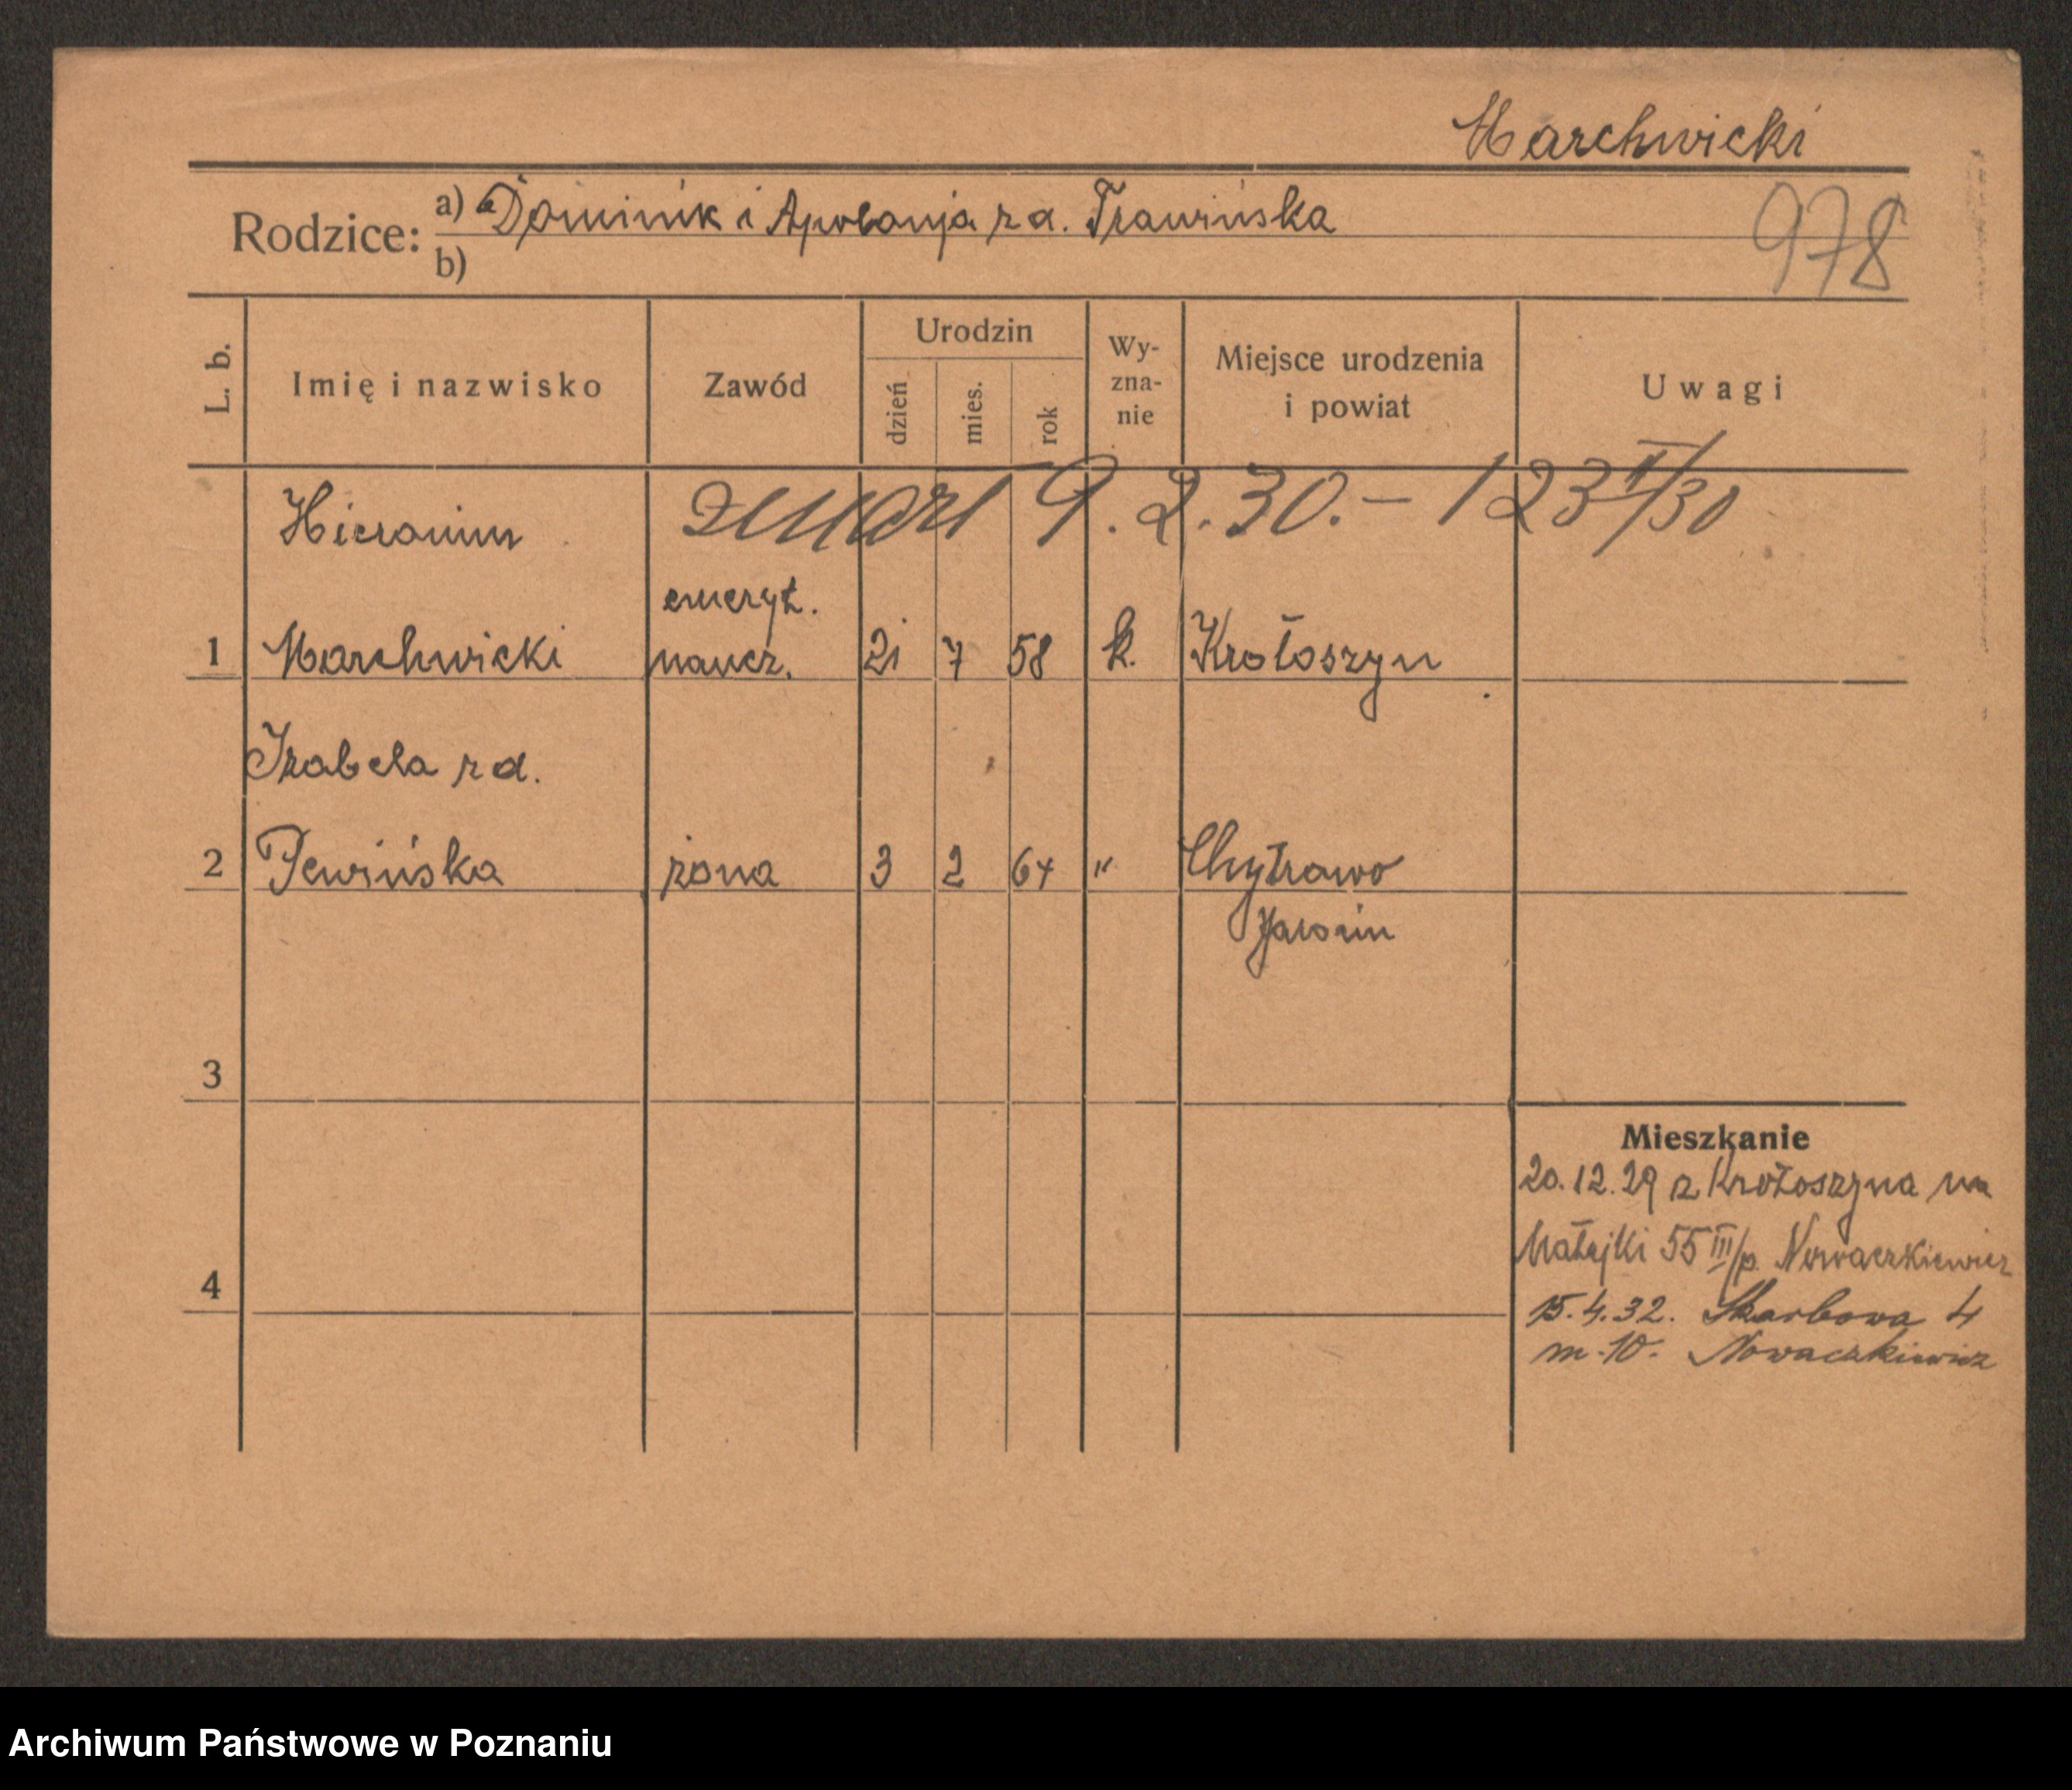 Marchwicki
Rodzice: a) Dominik i Apolonja z d. Trawińska
b)
978
L. b.
Imię i nazwisko
Zawód
Urodzin
dzień
mies.
rok
Wy-
zna-
nie
Miejsce urodzenia
i powiat
Uwagi
Hieronim
zmarł 9.2.30.– 123 II/30
emeryt.
1 Marchwicki naucz. 21 7 58 k. Krotoszyn
Izabela z d.
2 Pewińska żona 3 2 64 " Chytrowo
Jarocin
3
Mieszkanie
20.12.29 z Krotoszyna na
Matejki 55 III/p. Nowaczkiewicz
4
15.4.32. Skarbowa 4
m. 10. Nowaczkiewicz
Archiwum Państwowe w Poznaniu